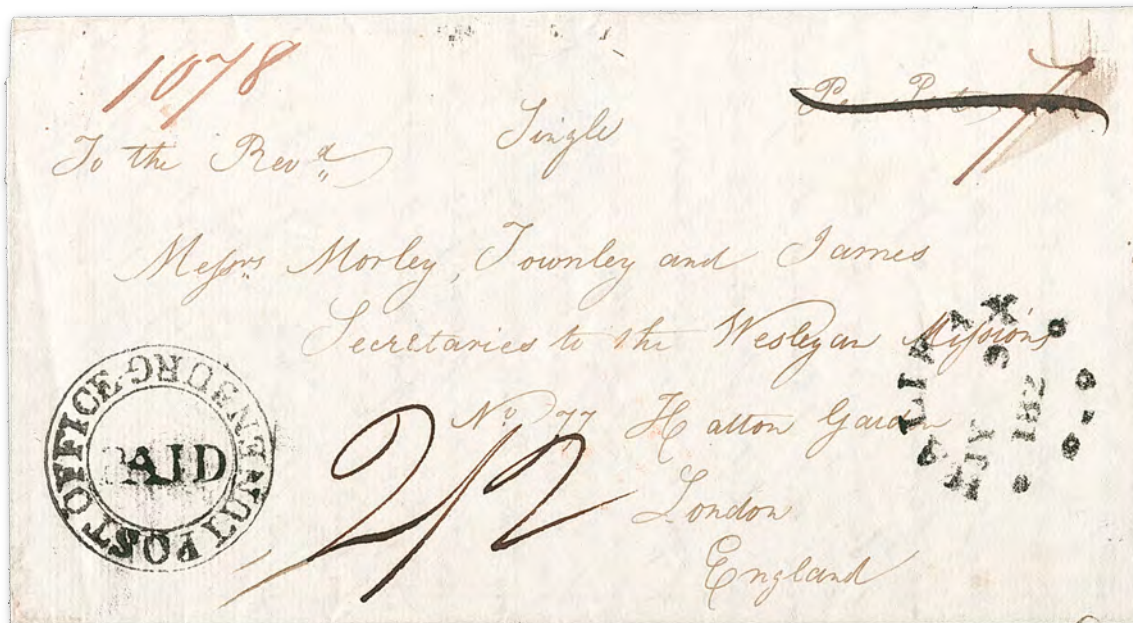 1078
Single
To the Revd
Messrs Morley, Townley and James
Secretaries to the Wesleyan Missions
No 77 Hatton Garden
London
England
2/2
POST OFFICE LUNENBURG
PAID
HALIFAX
182